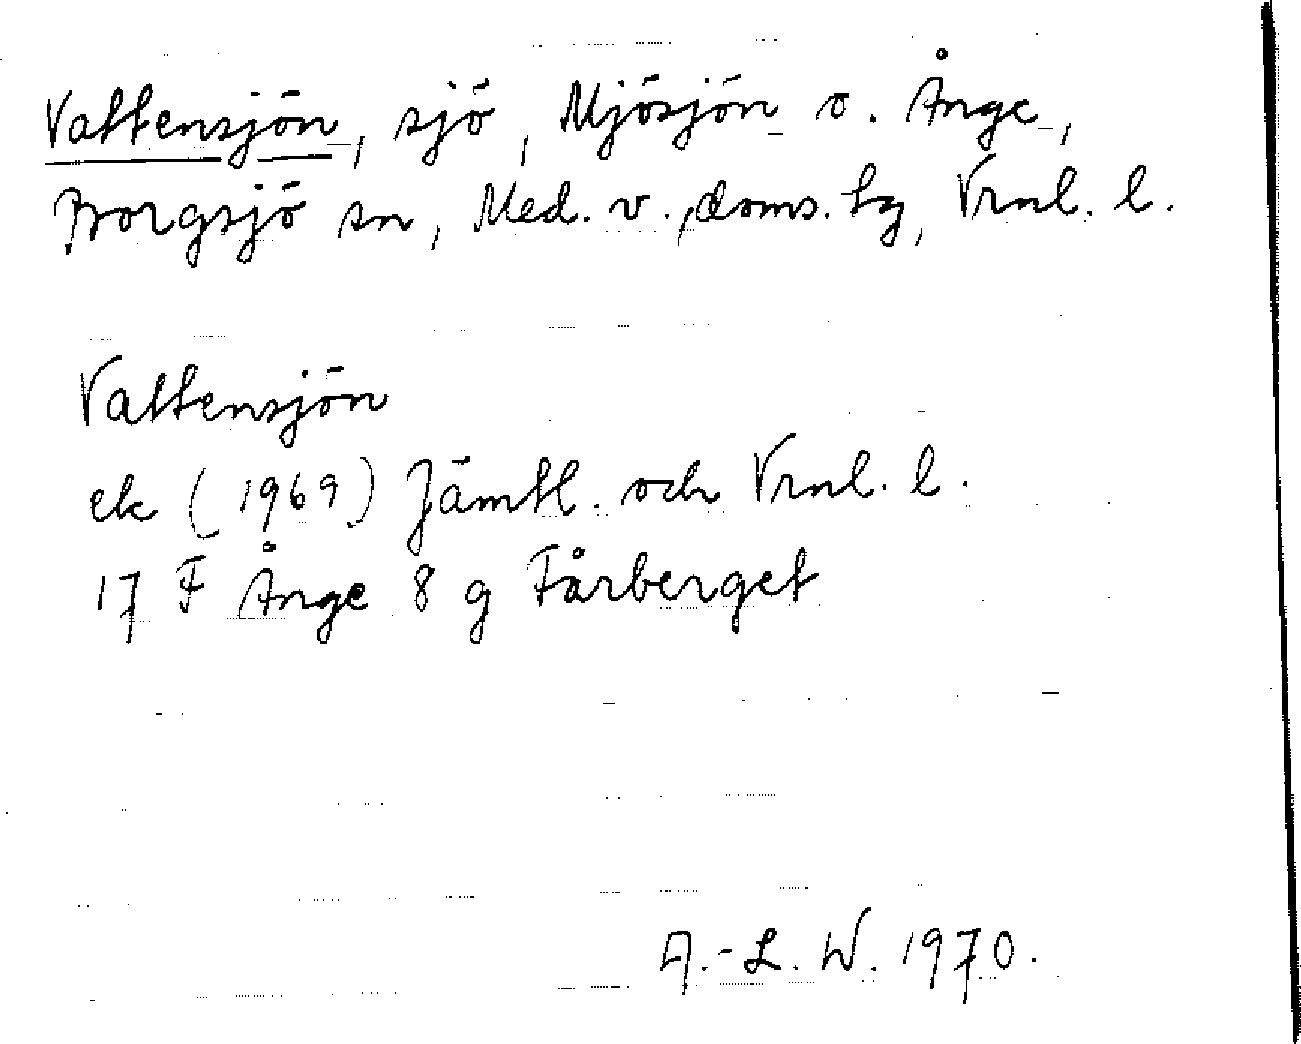 Vattensjön, sjö, Mjösjön o. Ånge,
Borgsjö sn, Med. v. doms. tg, Vrnl. l.
Vattensjön
ek (1969) Jämtl. och Vrnl. l.
17 F Ånge 8 g Fårberget
A.-L. W. 1970.